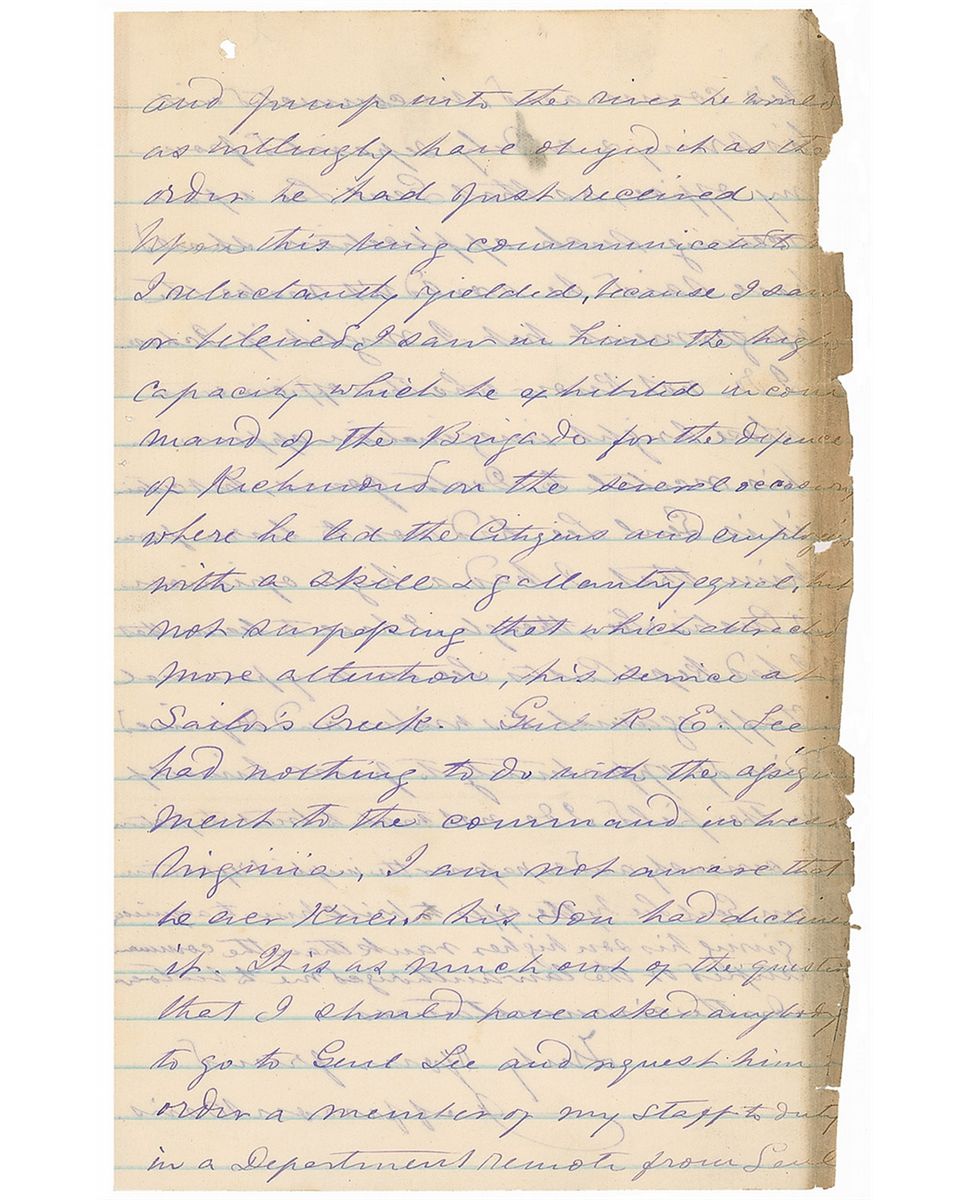 and jump into the river he would
as willingly have obeyed it as the
order he had just received
Upon this being communicated to
I reluctantly yielded, because I saw
or believed I saw in him the high
capacity which he exhibited in com
mand of the Brigade for the defence
of Richmond on the several occasions
where he led the Citizens and employés
with a skill & gallantry equal, but
not surpassing that which attracted
more attention, his service at
Sailor's Creek. Genl R. E. Lee
had nothing to do with the assign
ment to the command in West
Virginia, I am not aware that
he ever knew his Son had declined
it. It is as much out of the question
that I should have asked anybody
to go to Genl Lee and request him
order a member of my staff to duty
in a Department remote from Genl